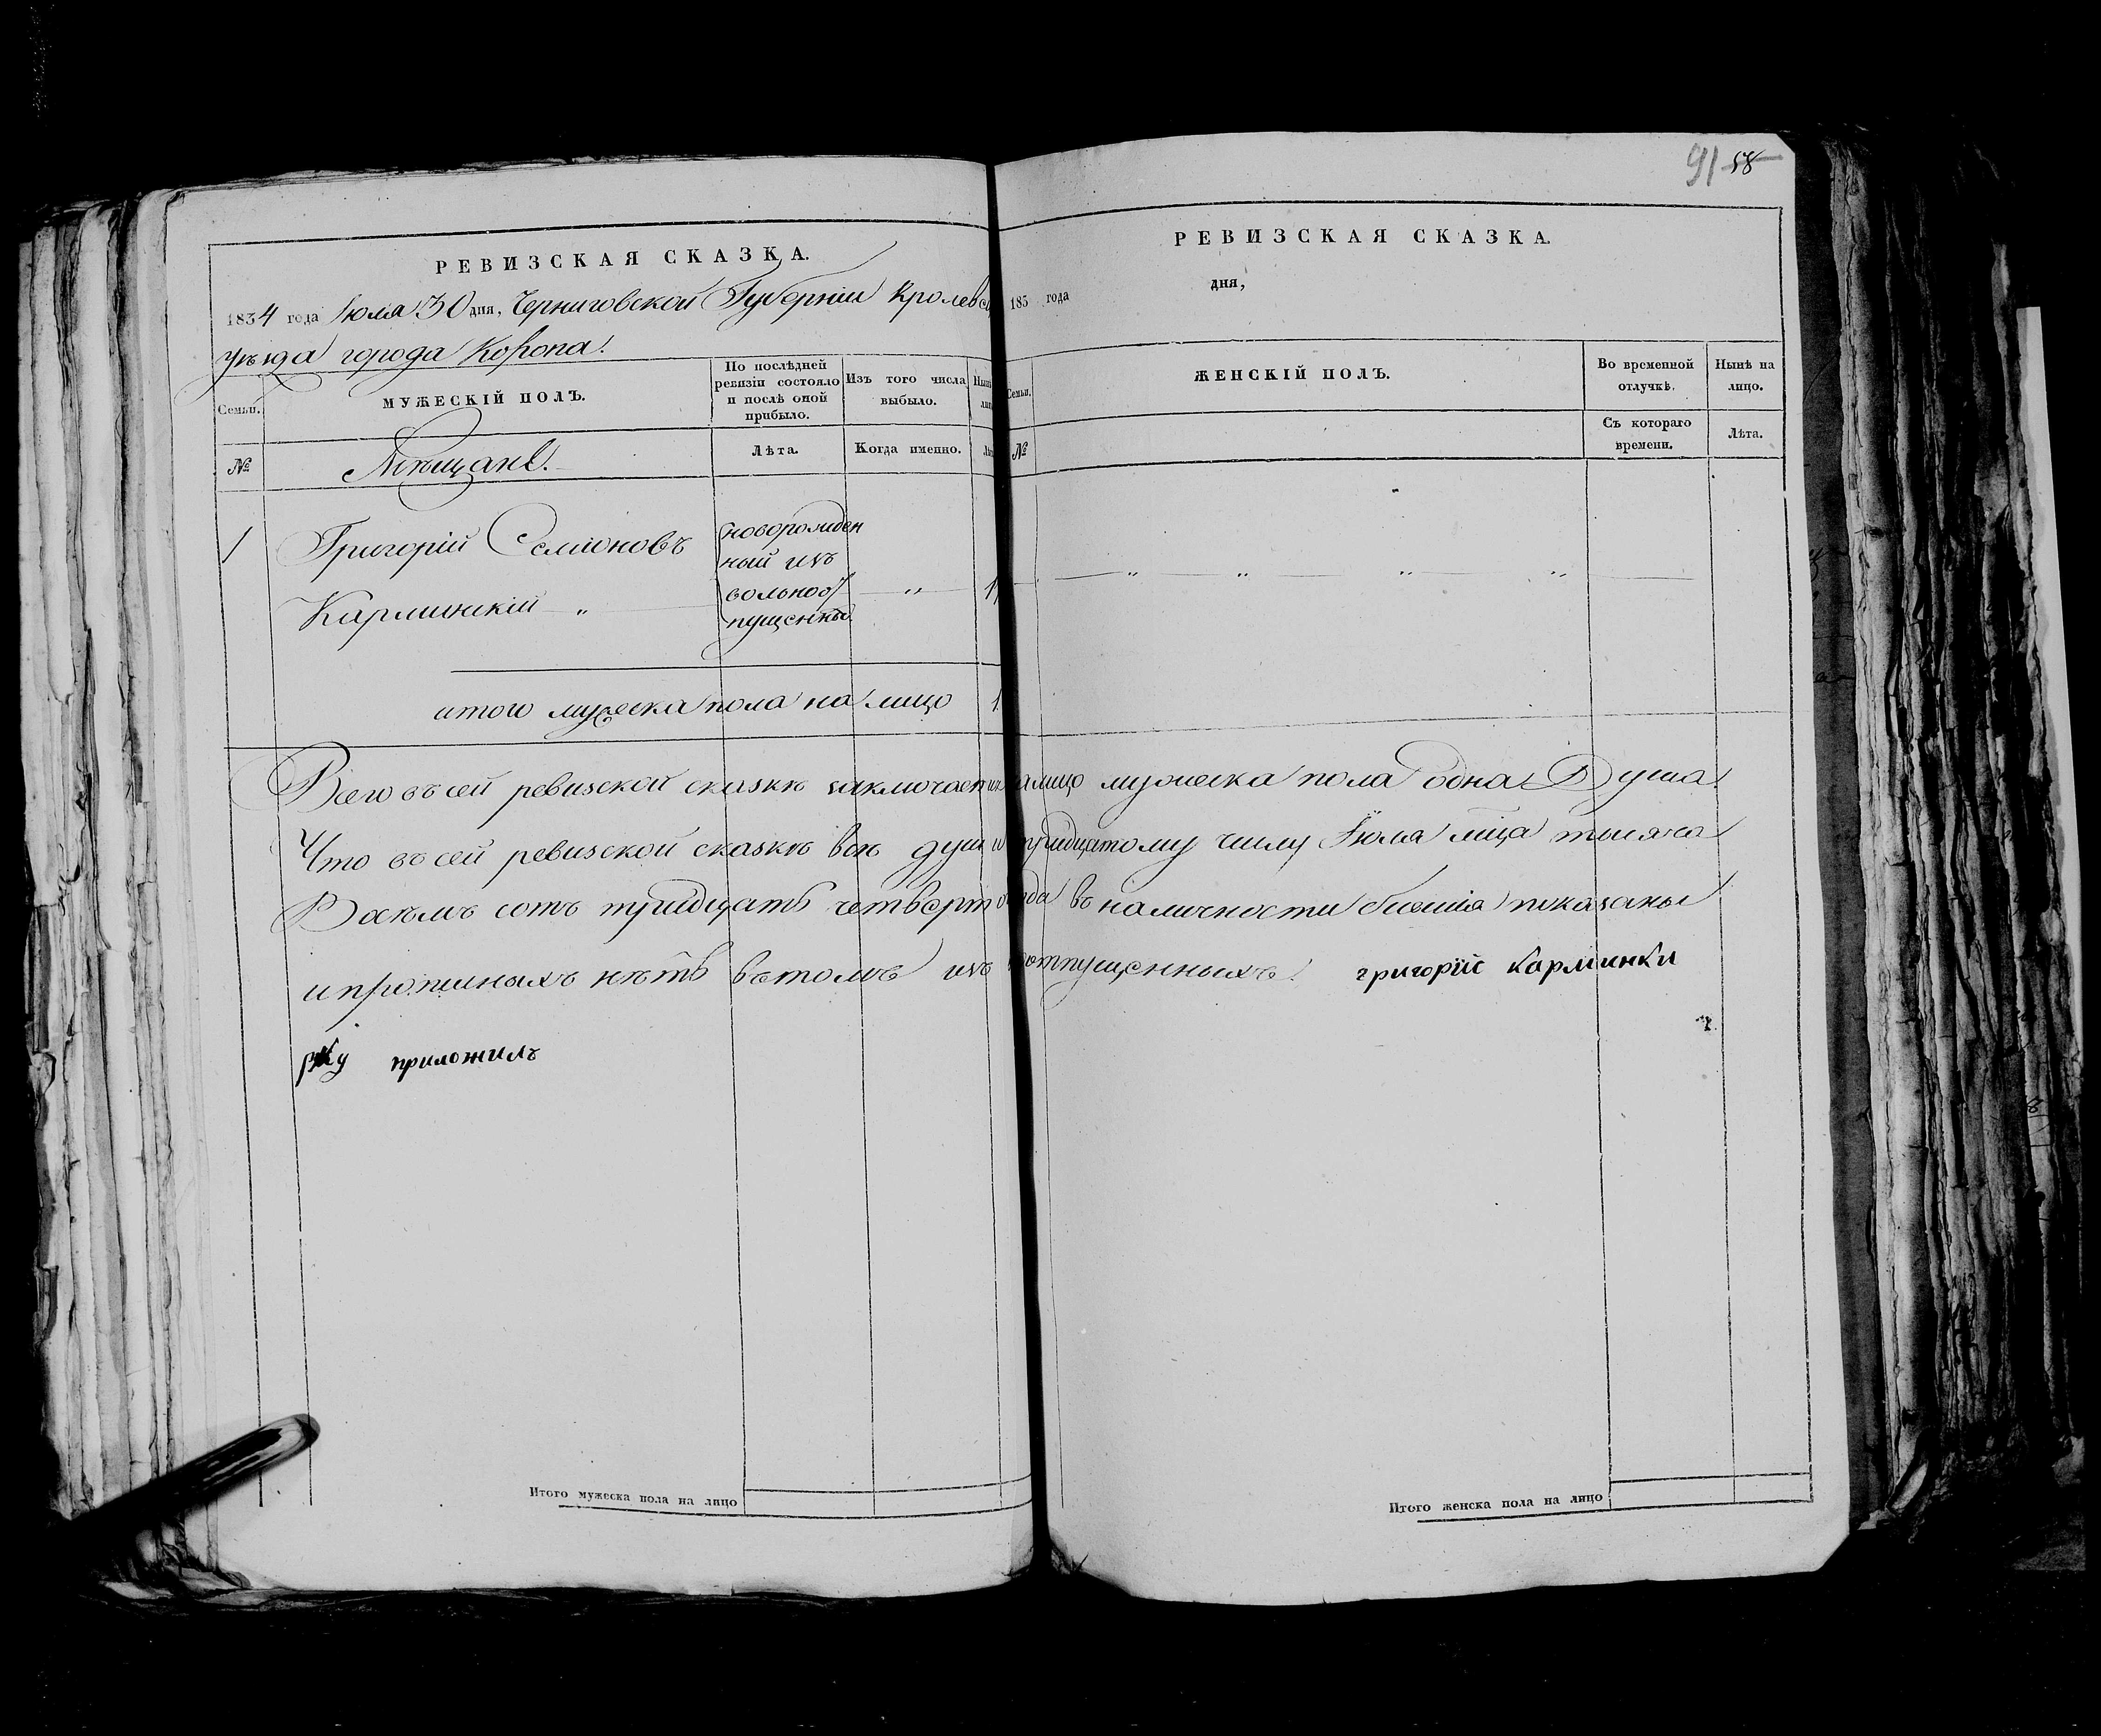 91 58
РЕВИЗСКАЯ СКАЗКА.
1834 года Іюля 30 дня, Черниговской Губерніи Кролевс
уѣзда города Коропа.
Семьи.
МУЖЕСКІЙ ПОЛЪ.
По послѣдней
ревизіи состояло
и послѣ оной
прибыло.
Изъ того числа
выбыло.
Нынѣ
лиц
№
Мѣщане.
Лѣта.
Когда именно.
Лѣт
1
Григорій Семіоновъ
Карминскій „
новорожден
ный изъ
вольноот
пущенныхъ
„
1
итого мужеска пола на лицо 1
РЕВИЗСКАЯ СКАЗКА.
183 года дня,
Семьи.
ЖЕНСКІЙ ПОЛЪ.
Во временной
отлучкѣ.
Нынѣ на
лицо.
№
Съ котораго
времени.
Лѣта.
„ „ „ „
Всего въ сей ревизской сказкѣ заключается налицо мужеска пола одна Душа.
Что въ сей ревизской сказкѣ всѣ души тридцатому числу Іюля мца тысяча
Восѣмъ сотъ тридцать четверт года въ наличности показаны
и прописныхъ нѣтъ въ томъ изъ отпущенныхъ григорїй карминки
руку приложилъ
Итого мужеска пола на лицо
Итого женска пола на лицо